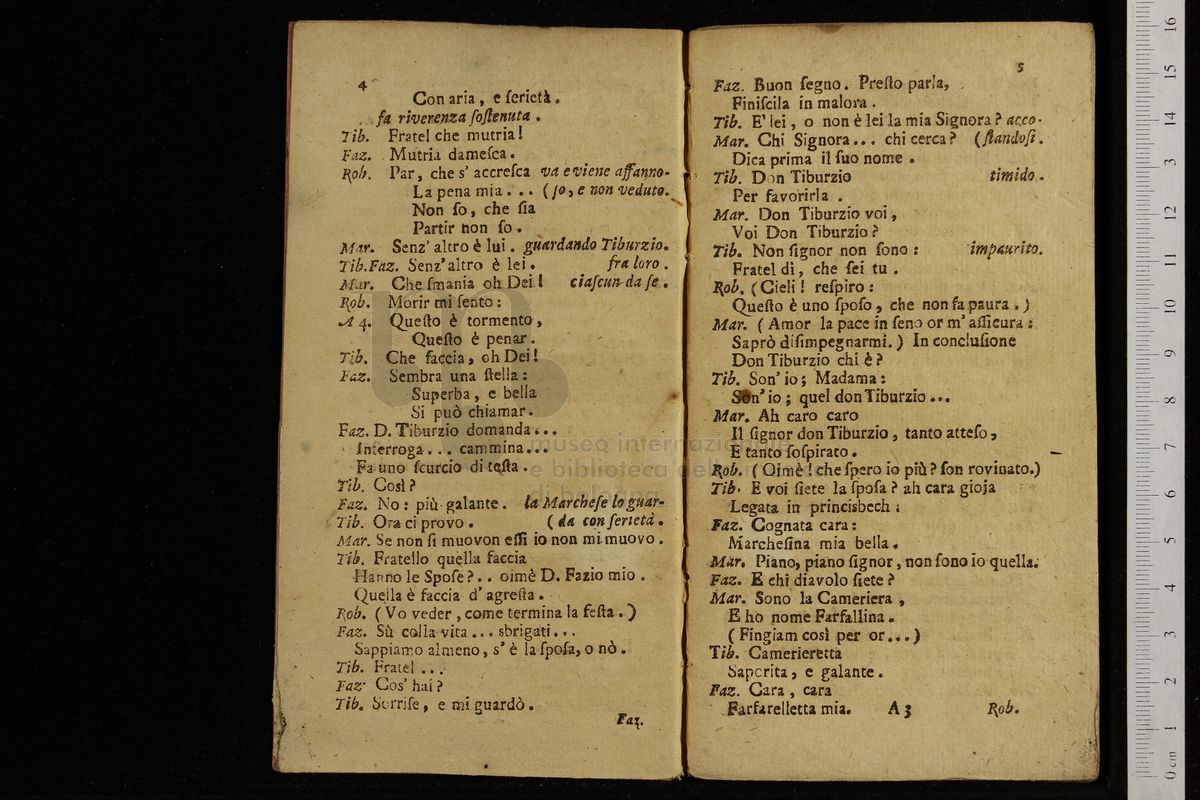 4
Con aria, e ſerietà.
fa riverenza ſoſtenuta.
Tib. Fratel che mutria!
Faz. Mutria dameſca.
Rob. Par, che s' accreſca va e viene affanno-
La pena mia... (ſo, e non veduto.
Non ſo, che ſia
Partir non ſo.
Mar. Senz' altro è lui. guardando Tiburzio.
Tib.Faz. Senz' altro è lei. fra loro.
Mar. Che ſmania oh Dei! ciaſcun da ſe.
Rob. Morir mi ſento:
A 4. Queſto è tormento,
Queſto è penar.
Tib. Che faccia, oh Dei!
Faz. Sembra una ſtella:
Superba, e bella
Si può chiamar.
Faz. D. Tiburzio domanda...
Interroga... cammina...
Fa uno ſcurcio di teſta.
Tib. Così?
Faz. No: più galante. la Marcheſe lo guar-
Tib. Ora ci provo. (da con ſerietà.
Mar. Se non ſi muovon eſſi io non mi muovo.
Tib. Fratello quella faccia
Hanno le Spoſe?.. oimè D. Fazio mio.
Quella è faccia d' agreſta.
Rob. (Vo veder, come termina la feſta.)
Faz. Sù colla vita... sbrigati...
Sappiamo almeno, s' è la ſpoſa, o nò.
Tib. Fratel...
Faz. Cos' hai?
Tib. Sorriſe, e mi guardò.
Faz.
5
Faz. Buon ſegno. Preſto parla,
Finiſcila in malora.
Tib. E' lei, o non è lei la mia Signora? acco-
Mar. Chi Signora... chi cerca? (ſtandoſi.
Dica prima il ſuo nome.
Tib. Don Tiburzio timido.
Per favorirla.
Mar. Don Tiburzio voi,
Voi Don Tiburzio?
Tib. Non ſignor non ſono: impaurito.
Fratel dì, che ſei tu.
Rob. (Cieli! reſpiro:
Queſto è uno ſpoſo, che non fa paura.)
Mar. (Amor la pace in ſeno or m' aſſicura:
Saprò diſimpegnarmi.) In concluſione
Don Tiburzio chi è?
Tib. Son' io; Madama:
Son' io; quel don Tiburzio...
Mar. Ah caro caro
Il ſignor don Tiburzio, tanto atteſo,
E tanto ſoſpirato.
Rob. (Oimè! che ſpero io più? ſon rovinato.)
Tib. E voi ſiete la ſpoſa? ah cara gioja
Legata in princisbech:
Faz. Cognata cara:
Marcheſina mia bella.
Mar. Piano, piano ſignor, non ſono io quella.
Faz. E chi diavolo ſiete?
Mar. Sono la Cameriera,
E ho nome Farfallina.
(Fingiam così per or...)
Tib. Camerieretta
Saporita, e galante.
Faz. Cara, cara
Farfarelletta mia. A3 Rob.
museo internazionale
e biblioteca della